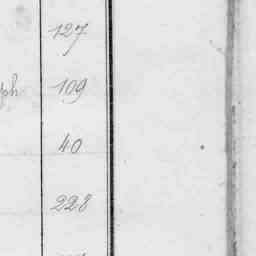 127
ph 109
40
228